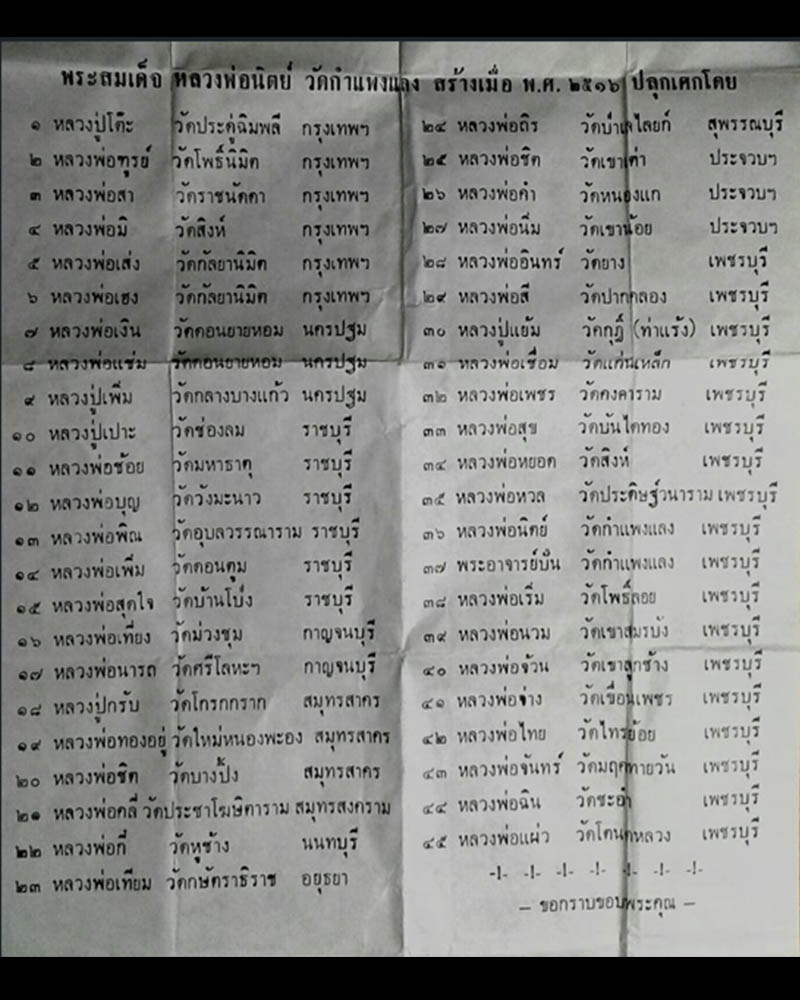 พระสมเด็จ หลวงพ่อนิตย์ วัดกำแพงแลง สร้างเมื่อ พ.ศ. ๒๕๑๖ ปลุกเศกโดย
๑ หลวงปู่โต๊ะ วัดประดู่ฉิมพลี กรุงเทพฯ
๒ หลวงพ่อฑูรย์ วัดโพธิ์นิมิต กรุงเทพฯ
๓ หลวงพ่อสา วัดราชนัดดา กรุงเทพฯ
๔ หลวงพ่อมิ วัดสิงห์ กรุงเทพฯ
๕ หลวงพ่อเส่ง วัดกัลยานิมิต กรุงเทพฯ
๖ หลวงพ่อเฮง วัดกัลยานิมิต กรุงเทพฯ
๗ หลวงพ่อเงิน วัดดอนยายหอม นครปฐม
๘ หลวงพ่อแช่ม วัดดอนยายหอม นครปฐม
๙ หลวงปู่เพิ่ม วัดกลางบางแก้ว นครปฐม
๑๐ หลวงปู่เปาะ วัดช่องลม ราชบุรี
๑๑ หลวงพ่อช้อย วัดมหาธาตุ ราชบุรี
๑๒ หลวงพ่อบุญ วัดวังมะนาว ราชบุรี
๑๓ หลวงพ่อพิณ วัดอุบลวรรณาราม ราชบุรี
๑๔ หลวงพ่อเพิ่ม วัดดอนตูม ราชบุรี
๑๕ หลวงพ่อสุดใจ วัดบ้านโป่ง ราชบุรี
๑๖ หลวงพ่อเที่ยง วัดม่วงชุม กาญจนบุรี
๑๗ หลวงพ่อนารถ วัดศรีโลหะฯ กาญจนบุรี
๑๘ หลวงปู่กรับ วัดโกรกกราก สมุทรสาคร
๑๙ หลวงพ่อทองอยู่ วัดใหม่หนองพะอง สมุทรสาคร
๒๐ หลวงพ่อชิต วัดบางปิ้ง สมุทรสาคร
๒๑ หลวงพ่อคลี่ วัดประชาโฆษิตาราม สมุทรสงคราม
๒๒ หลวงพ่อกี่ วัดหูช้าง นนทบุรี
๒๓ หลวงพ่อเทียม วัดกษัตราธิราช อยุธยา
๒๔ หลวงพ่อถิร วัดป่าเลไลยก์ สุพรรณบุรี
๒๕ หลวงพ่อชิต วัดเขาเต่า ประจวบฯ
๒๖ หลวงพ่อคำ วัดหนองแก ประจวบฯ
๒๗ หลวงพ่อนิ่ม วัดเขาน้อย ประจวบฯ
๒๘ หลวงพ่ออินทร์ วัดยาง เพชรบุรี
๒๙ หลวงพ่อสี วัดปากคลอง เพชรบุรี
๓๐ หลวงปู่แย้ม วัดกุฎิ์ (ท่าแร้ง) เพชรบุรี
๓๑ หลวงพ่อเชื่อม วัดแก่นเหล็ก เพชรบุรี
๓๒ หลวงพ่อเพชร วัดคงคาราม เพชรบุรี
๓๓ หลวงพ่อสุข วัดบันไดทอง เพชรบุรี
๓๔ หลวงพ่อหยอด วัดสิงห์ เพชรบุรี
๓๕ หลวงพ่อหวล วัดประดิษฐ์วนาราม เพชรบุรี
๓๖ หลวงพ่อนิตย์ วัดกำแพงแลง เพชรบุรี
๓๗ พระอาจารย์บั๋น วัดกำแพงแลง เพชรบุรี
๓๘ หลวงพ่อเริ่ม วัดโพธิ์ลอย เพชรบุรี
๓๙ หลวงพ่อนวม วัดเขาสมรบัง เพชรบุรี
๔๐ หลวงพ่อจ้วน วัดเขาลูกช้าง เพชรบุรี
๔๑ หลวงพ่อจ่าง วัดเขื่อนเพชร เพชรบุรี
๔๒ หลวงพ่อไทย วัดไทรย้อย เพชรบุรี
๔๓ หลวงพ่อจันทร์ วัดมฤคทายวัน เพชรบุรี
๔๔ หลวงพ่อฉิน วัดชะอำ เพชรบุรี
๔๕ หลวงพ่อแผ่ว วัดโตนดหลวง เพชรบุรี
-!- -!- -!- -!- -!- -!- -!-
– ขอกราบขอบพระคุณ –